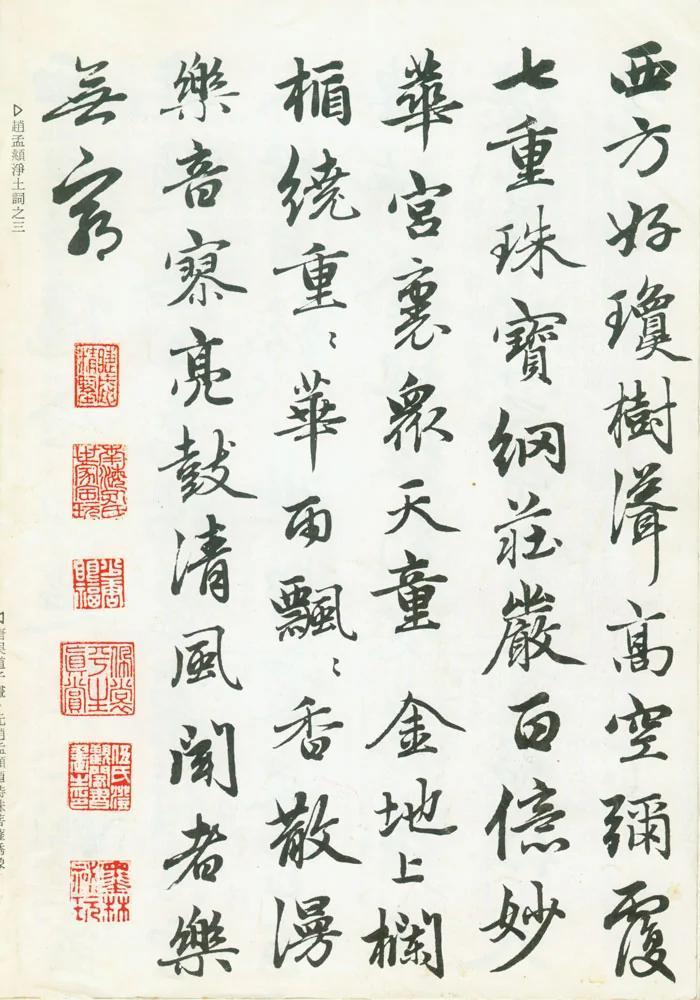 西方好瓊樹聳高空彌覆
七重珠寶網莊嚴百億妙
華宮裏衆天童 金地上欄
楯繞重〻華雨飄〻香散漫
樂音寥亮鼓清風聞者樂
無窮
墨林祕玩
▷趙孟頫淨土詞之三